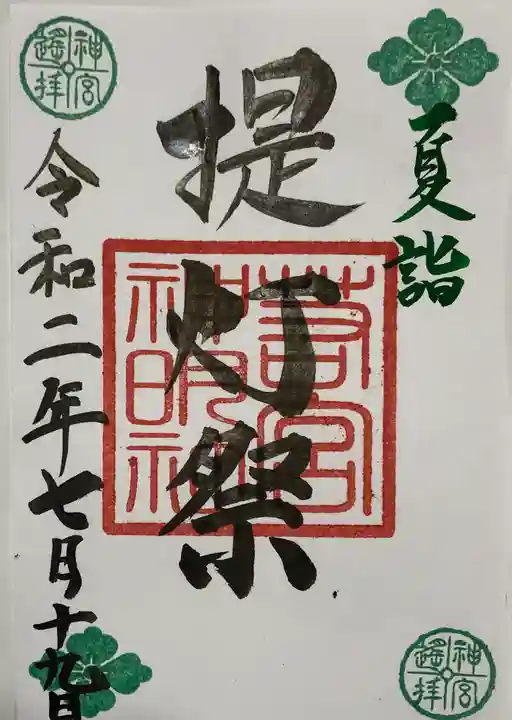 夏詣
提灯祭
令和二年七月十九日
若宮
神明社
神宮
遙拝
神宮
遙拝